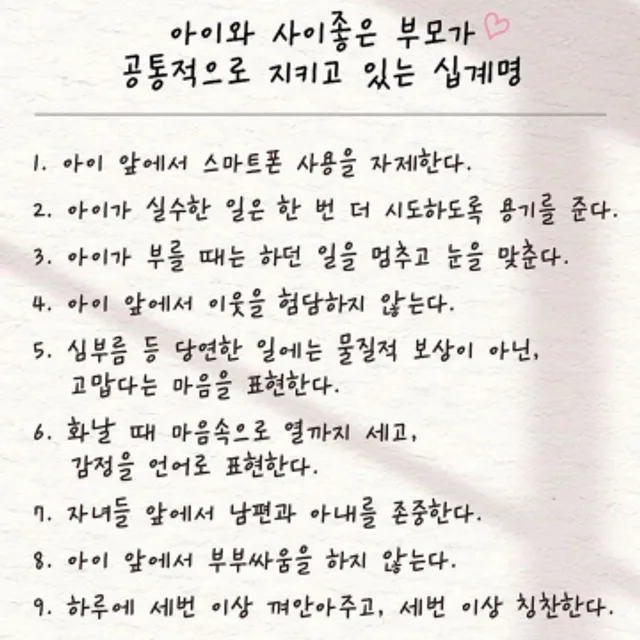 아이와 사이좋은 부모가
공통적으로 지키고 있는 십계명
1. 아이 앞에서 스마트폰 사용을 자제한다.
2. 아이가 실수한 일은 한 번 더 시도하도록 용기를 준다.
3. 아이가 부를 때는 하던 일을 멈추고 눈을 맞춘다.
4. 아이 앞에서 이웃을 험담하지 않는다.
5. 심부름 등 당연한 일에는 물질적 보상이 아닌,
고맙다는 마음을 표현한다.
6. 화날 때 마음속으로 열까지 세고,
감정을 언어로 표현한다.
7. 자녀들 앞에서 남편과 아내를 존중한다.
8. 아이 앞에서 부부싸움을 하지 않는다.
9. 하루에 세번 이상 껴안아주고, 세번 이상 칭찬한다.